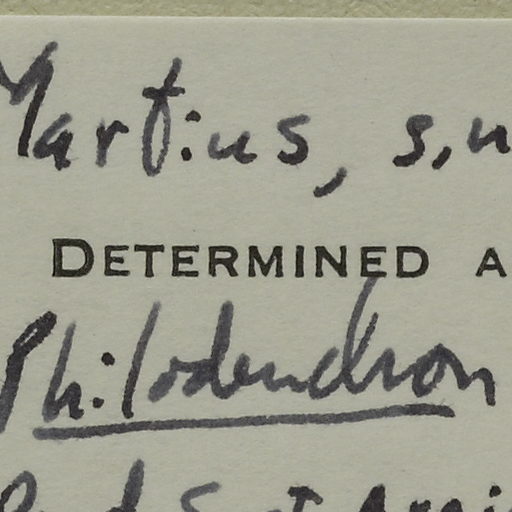 Martius, s.n
DETERMINED A
Philodendron